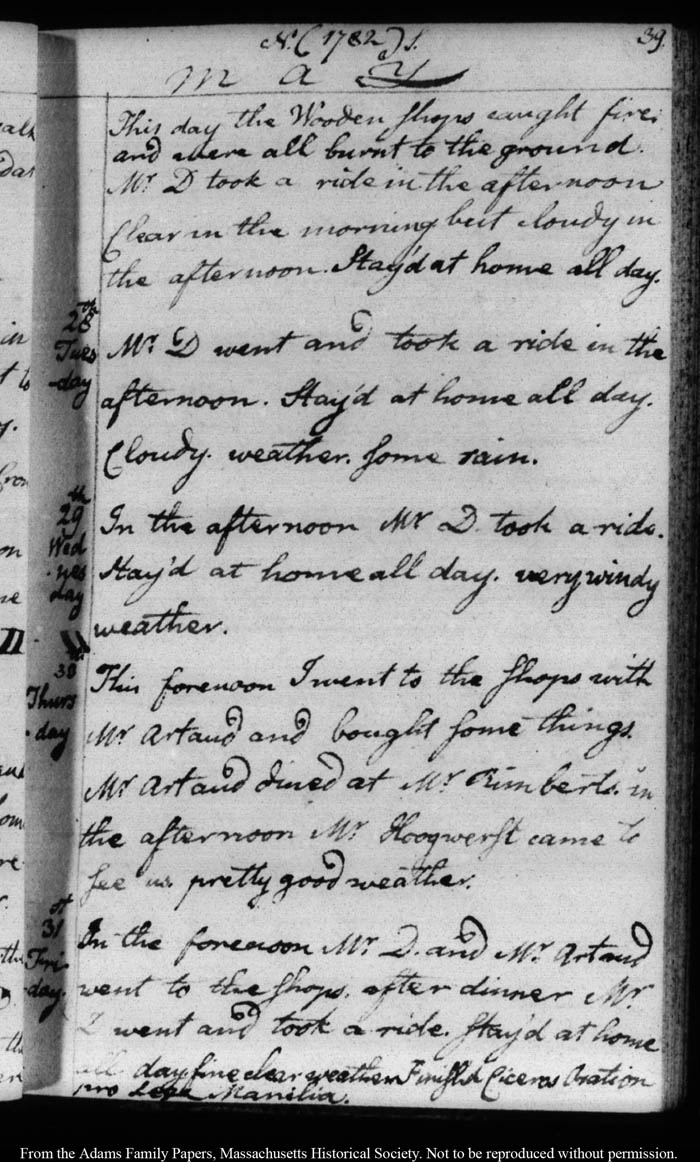 N.S. (1782)
39.
MAY
This day the Wooden shops caught fire;
and were all burnt to the ground.
Mr. D took a ride in the afternoon
Clear in the morning but cloudy in
the afternoon. Stay'd at home all day.
28th
Tues
-day
Mr. D went and took a ride in the
afternoon. Stay'd at home all day.
Cloudy weather. some rain.
29th
Wed
-nes
day
In the afternoon Mr D. took a ride.
Stay'd at home all day. very windy
weather.
30th
Thurs
-day
This forenoon I went to the shops with
Mr Artaud and bought some things.
Mr Artaud dined at Mr. Rimberts. in
the afternoon Mr. Hoogwerft came to
see us. pretty good weather.
31st
Fri-
day.
In the forenoon Mr D. and Mr. Artaud
went to the shops. after dinner Mr.
D went and took a ride. Stay'd at home
all day fine clear weather Finish'd Ciceros Oration
pro Lege Manilia.
From the Adams Family Papers, Massachusetts Historical Society. Not to be reproduced without permission.